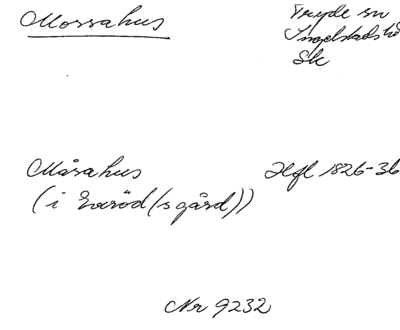 Mossahus
Tryde sn
Ingelstads hd
Sk
Måsahus Hfl 1826-36
(i Everöd(sgård))
Nr 9232